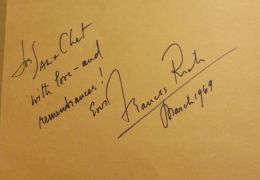 for Sal + Chet
with love - and
remembrances!
Frances
March 1969